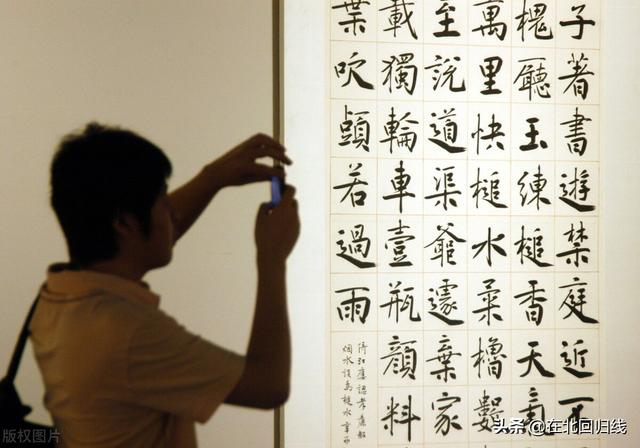 子著書遊禁庭近
槐廳玉練槌香天氣
萬里快槌水柔櫓
至說道渠爺遽棄家
載獨輪車壹瓶顏料
葉吹若過雨
版权图片
头条 @在北回归线